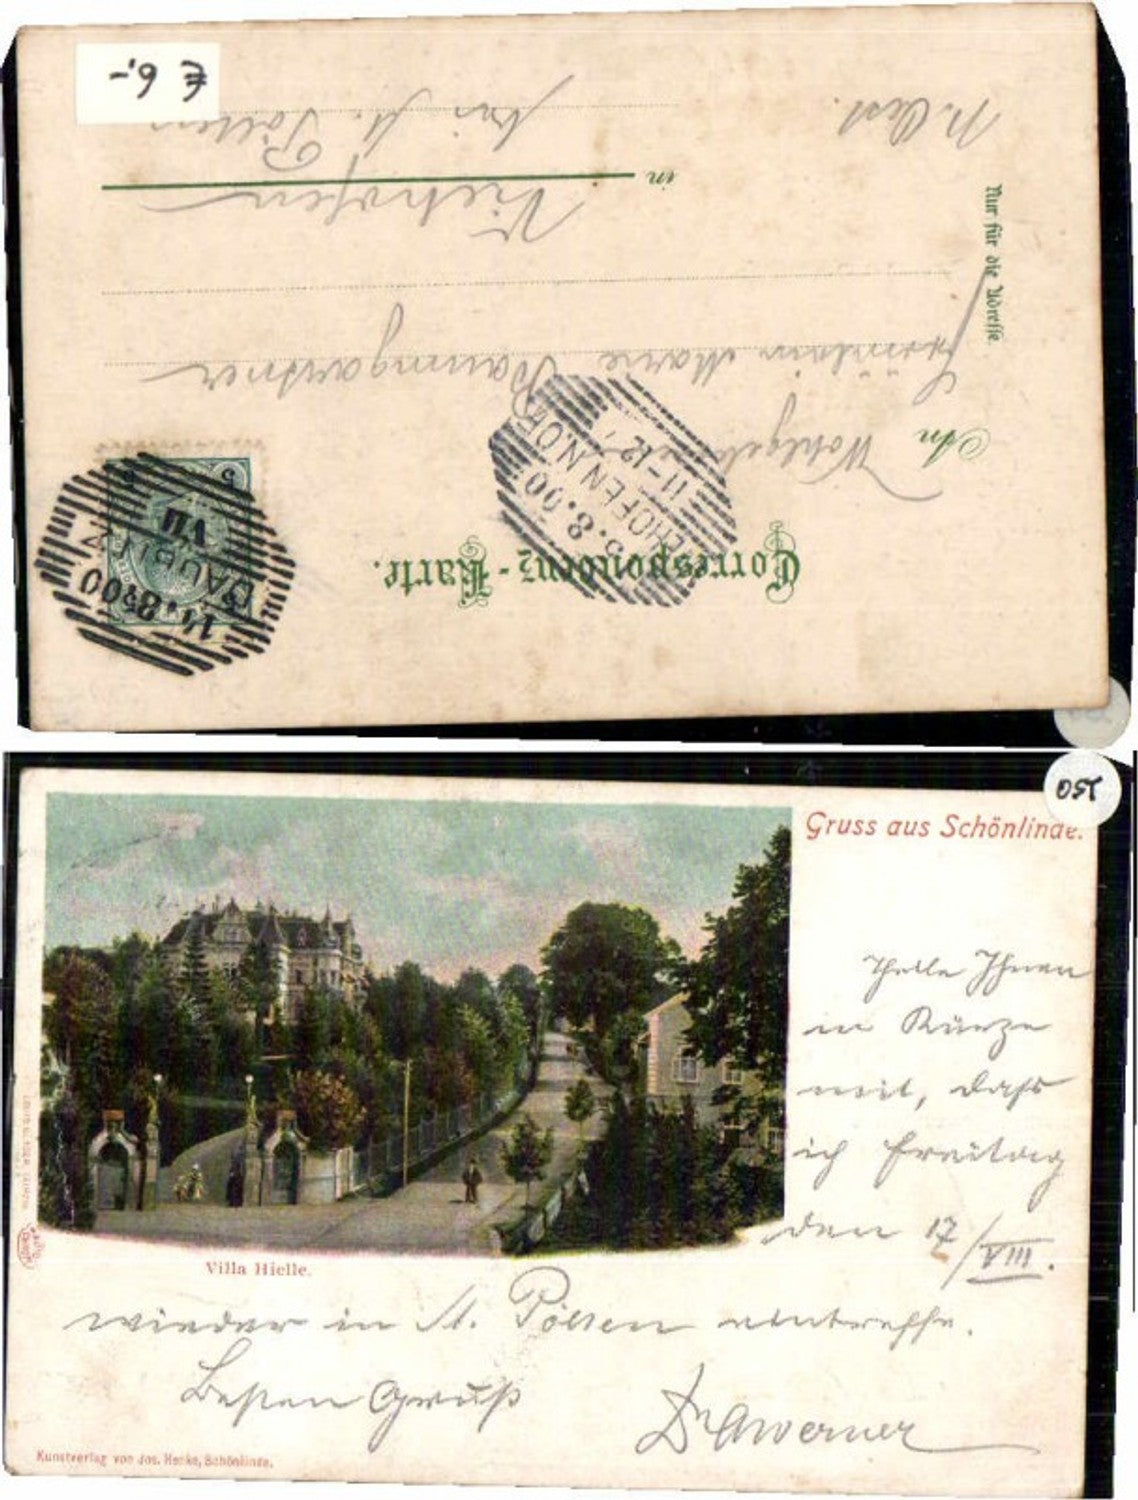 € 6,-
Correspondenz-Karte.
An Wohlgeboren
Fräulein Marie Baumgartner
in Viehofen
bei St. Pölten
N. Oest.
Nur für die Adresse.
5
14.8.00
DAUBITZ
VII
.8.00
EHOFEN N.OE
11-12
OST
Gruss aus Schönlinde.
Theile Ihnen
in Kürze
mit, daß
ich Freitag
den 17/VIII.
wieder in St. Pölten eintreffe.
Besten Gruß
Dr. A Werner
Villa Hielle.
Kunstverlag von Jos. Henke, Schönlinde.